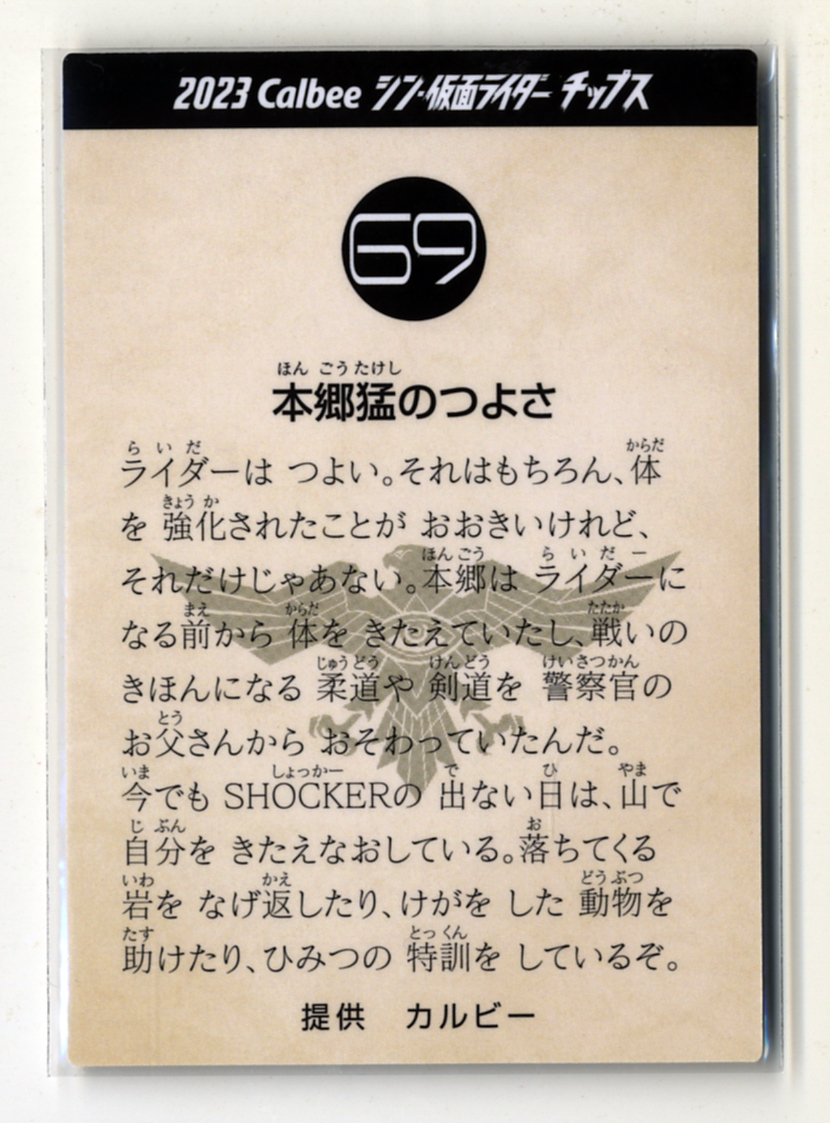 2023 Calbee シン・仮面ライダー チップス
69
ほん ごう たけし
本郷猛のつよさ
らいだ からだ
ライダーは つよい。それはもちろん、体
きょう か
を 強化されたことが おおきいけれど、
ほんごう らいだー
それだけじゃあない。本郷は ライダーに
まえ からだ たたか
なる前から 体を きたえていたし、戦いの
じゅうどう けんどう けいさつかん
きほんになる 柔道や 剣道を 警察官の
とう
お父さんから おそわっていたんだ。
いま しょっかー で ひ やま
今でも SHOCKERの 出ない日は、山で
じ ぶん お
自分を きたえなおしている。落ちてくる
いわ かえ どうぶつ
岩を なげ返したり、けがを した 動物を
たす とっくん
助けたり、ひみつの 特訓を しているぞ。
提供 カルビー